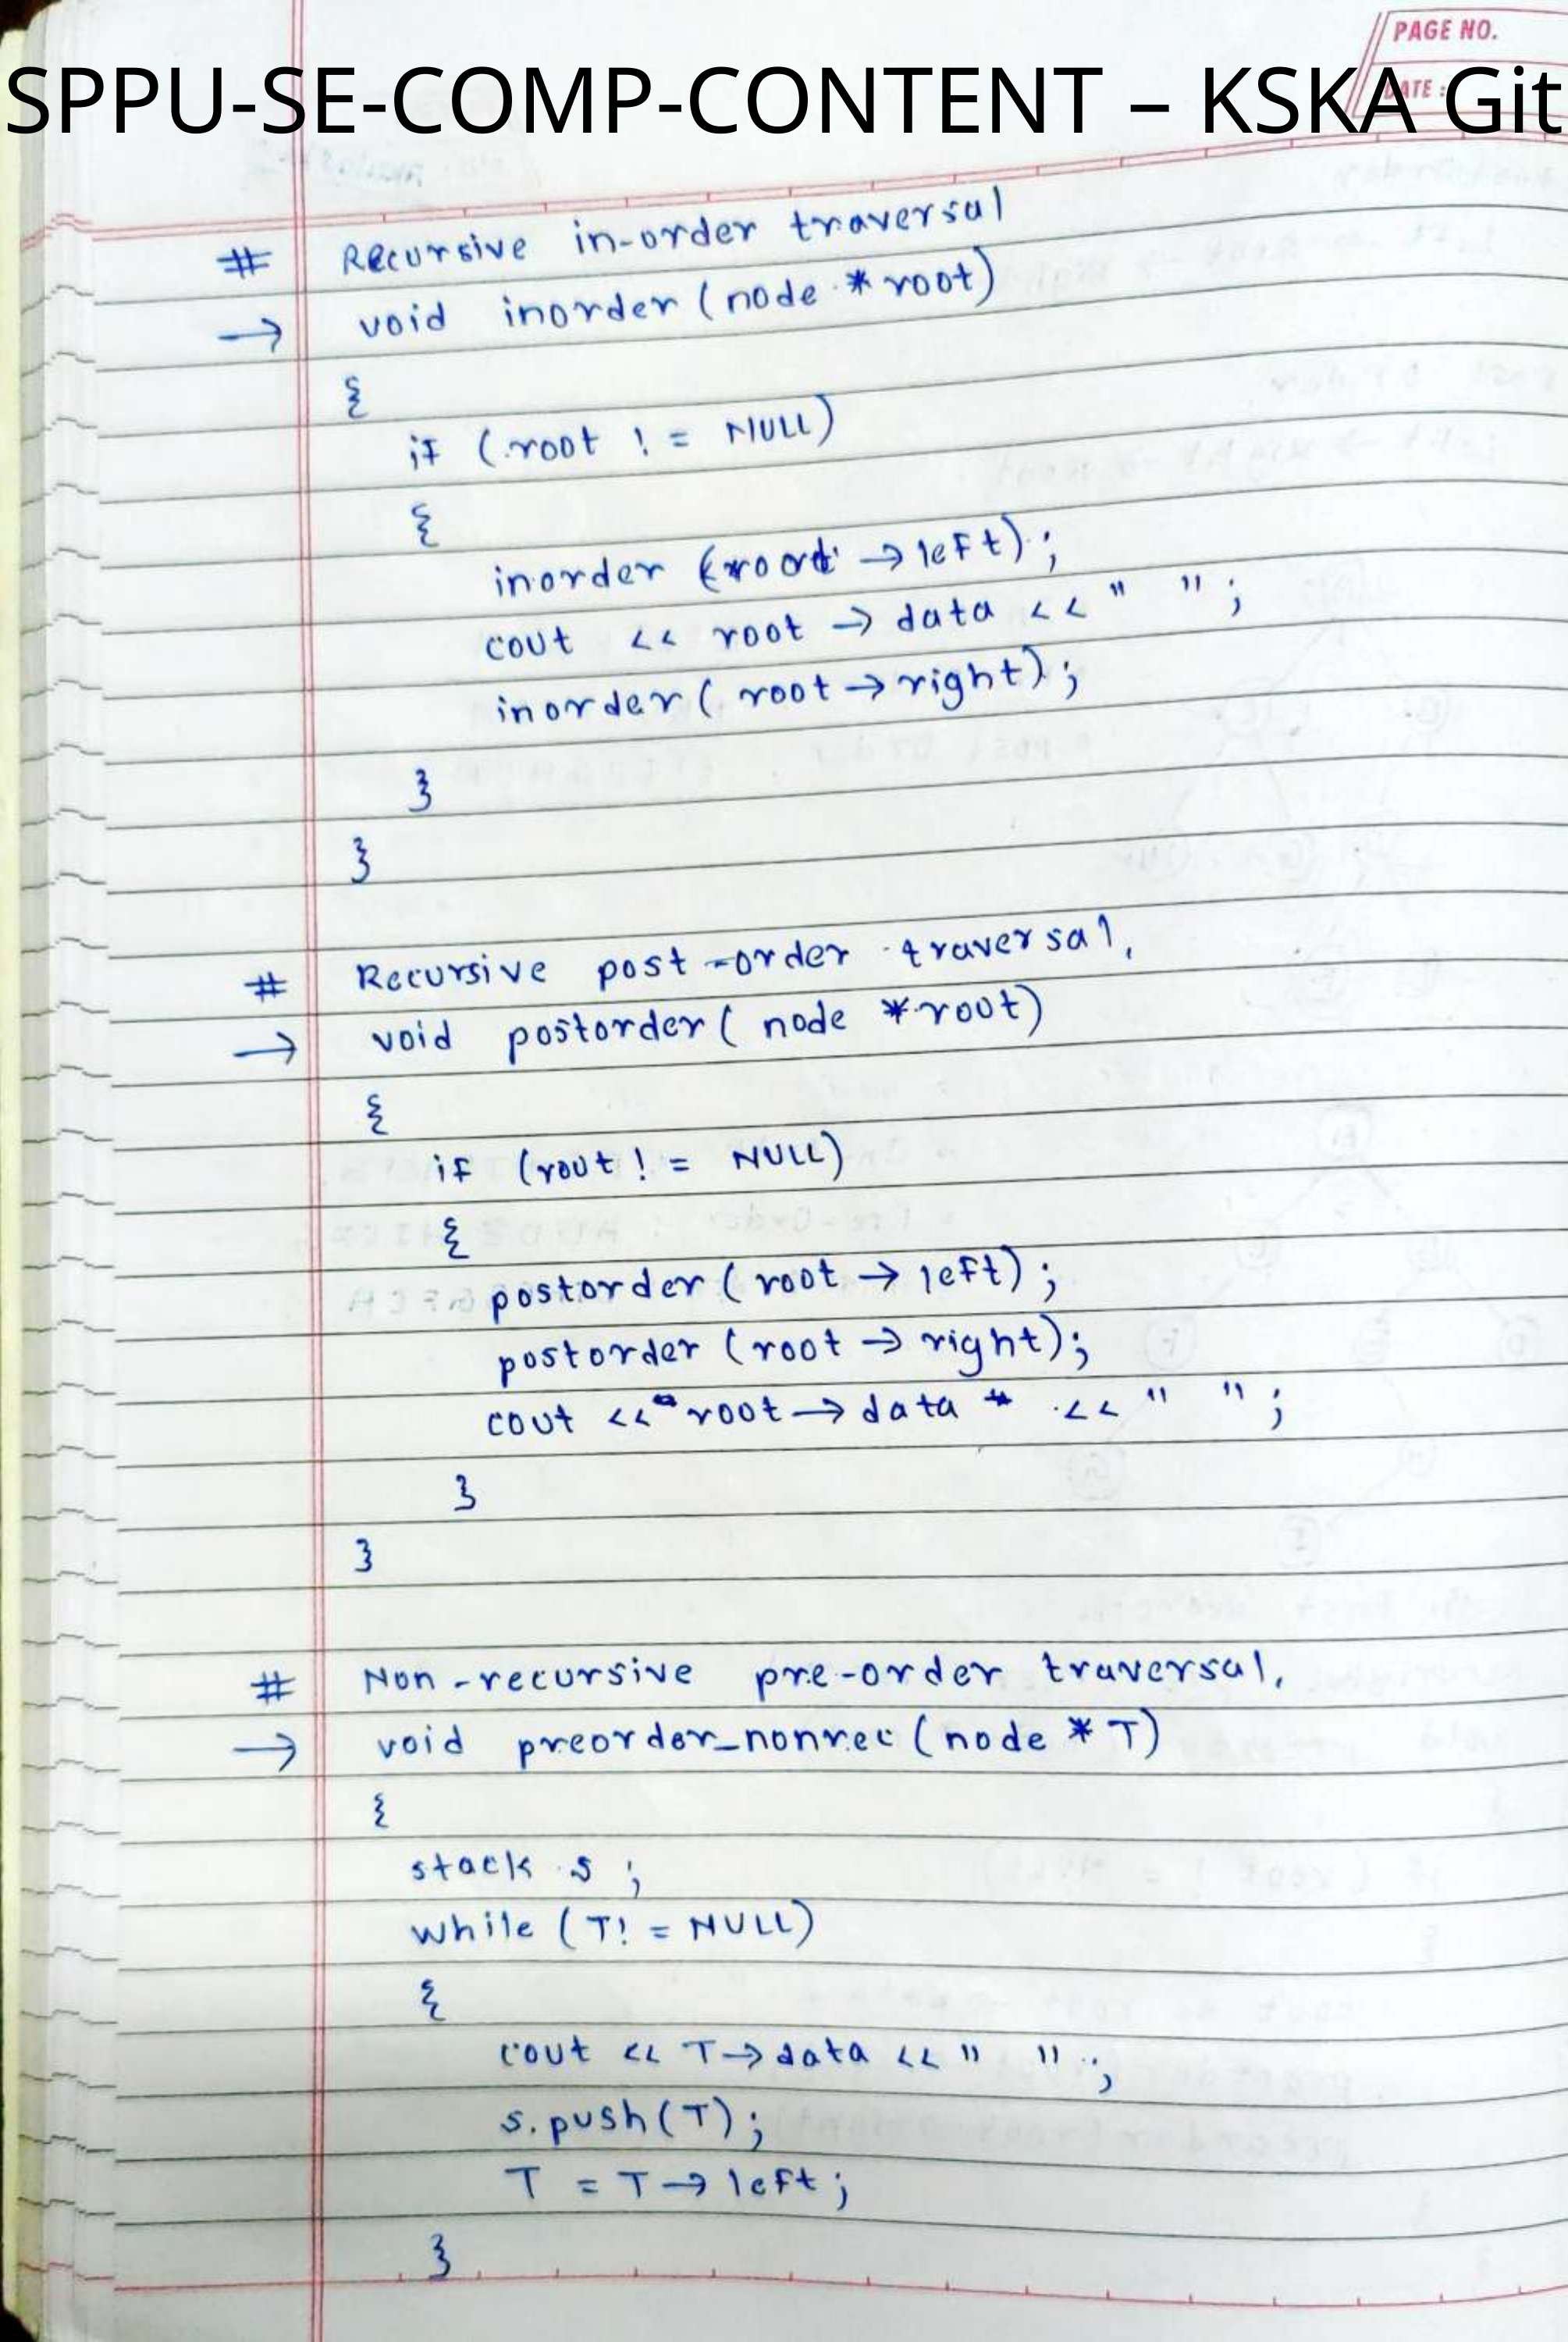 PAGE NO.
DATE :
SPPU-SE-COMP-CONTENT – KSKA Git
# Recursive in-order traversal
→ void inorder (node *root)
{
if (root != NULL)
{
inorder (root →left);
cout << root → data << " ";
inorder( root→right);
}
}
# Recursive post-order traversal,
→ void postorder( node *root)
{
if (root != NULL)
{
postorder (root → left);
postorder (root → right);
cout << root → data << " ";
}
}
# Non-recursive pre-order traversal,
→ void preorder_nonrec (node * T)
{
stack s ;
while (T! = NULL)
{
cout << T→data << " ";
s.push(T);
T = T→left;
}